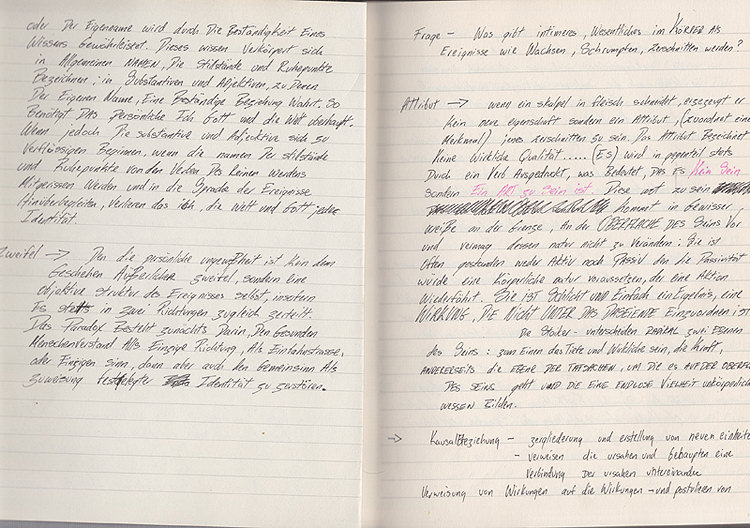 oder Der Eigenname wird durch Die Beständigkeit Eines
Wissens Gewährleistet. Dieses wissen Verkörpert sich
in Allgemeinen NAMEN, Die stillstände und Ruhepunkte
Bezeichnen, in Substantiven und Adjektiven, zu Denen
Der Eigenen Name, Eine Beständige Beziehung Wahrt. So
Benötigt Das persönliche Ich Gott und die Welt überhaupt.
Wenn jedoch Die substantive und Adjektive sich zu
Verflüssigen Beginnen, wenn die namen Der stillstände
und Ruhepunkte von den Verben Des Reinen Werdens
Mitgerissen Werden und in die Sprache der Ereignisse
Hinübergleiten, verlieren das ich, die Welt und Gott jede
Identität.
Zweifel → Den die persönliche ungewißheit ist Kein dem
Geschehen Äußerlicher zweifel, sondern Eine
objektive struktur des Ereignisses selbst, insofern
Es stets in zwei Richtungen zugleich zerteilt.
Das Paradox Besteht zunächst Darin, Den Gesunden
Menschenverstand Als Einzige Richtung, Als Einbahnstrasse,
oder Einzigen sinn, dann aber auch den Gemeinsinn Als
zuweisung festgelegter Identität zu zerstören.
Frage - Was gibt intimeres, Wesentliches im KÖRPER als
Ereignisse wie Wachsen, Schrumpfen, zerschnitten werden?
Attribut → wenn ein skalpel in fleisch schneidet, erzeugt er
Kein neue eigenschaft sondern ein Attribut, (zuordnet eine
Merkmal) jenes zerschnitten zu sein. Das Attribut Bezeichnet
Keine Wirkliche Qualität..... (ES) wird im gegenteil stets
Durch ein Verb Ausgedrückt, was Bedeutet, DAS ES Kein Sein
sondern Ein ART zu Sein ist. Diese art zu sein
kommt in Gewisser
weiße an der Grenze, An der OBERFLÄCHE DES Seins Vor
und vermag dessen natur nicht zu Verändern: Sie ist
weder Aktiv noch Passiv den die Passivität
würde eine Körperliche natur voraussetzen, der eine Aktion
Wiederfährt. Sie IST Schlicht und Einfach ein Ergebnis, eine
WIRKUNG, DIE NICHT UNTER DAS DASEIENDE Einzuordnen IST
Die Stoiker - unterschieden RADIKAL zwei EBENEN
des Seins: zum Einen das Tiefe und Wirkliche sein, die Kraft,
ANDERERSEITS die EBENE DER TATSACHEN, UM DIE ES AUF DER OBERFLÄ
DES SEINS geht UND DIE EINE ENDLOSE VIELHEIT unkörperlich
WESEN Bilden.
→ Kausalbeziehung - zergliederung und erstellung von neuen einheite
- verweisen die ursachen und behaupten eine
Verbindung Der ursachen untereinander
Verweisung von Wirkungen auf die Wirkungen - und postulieren von